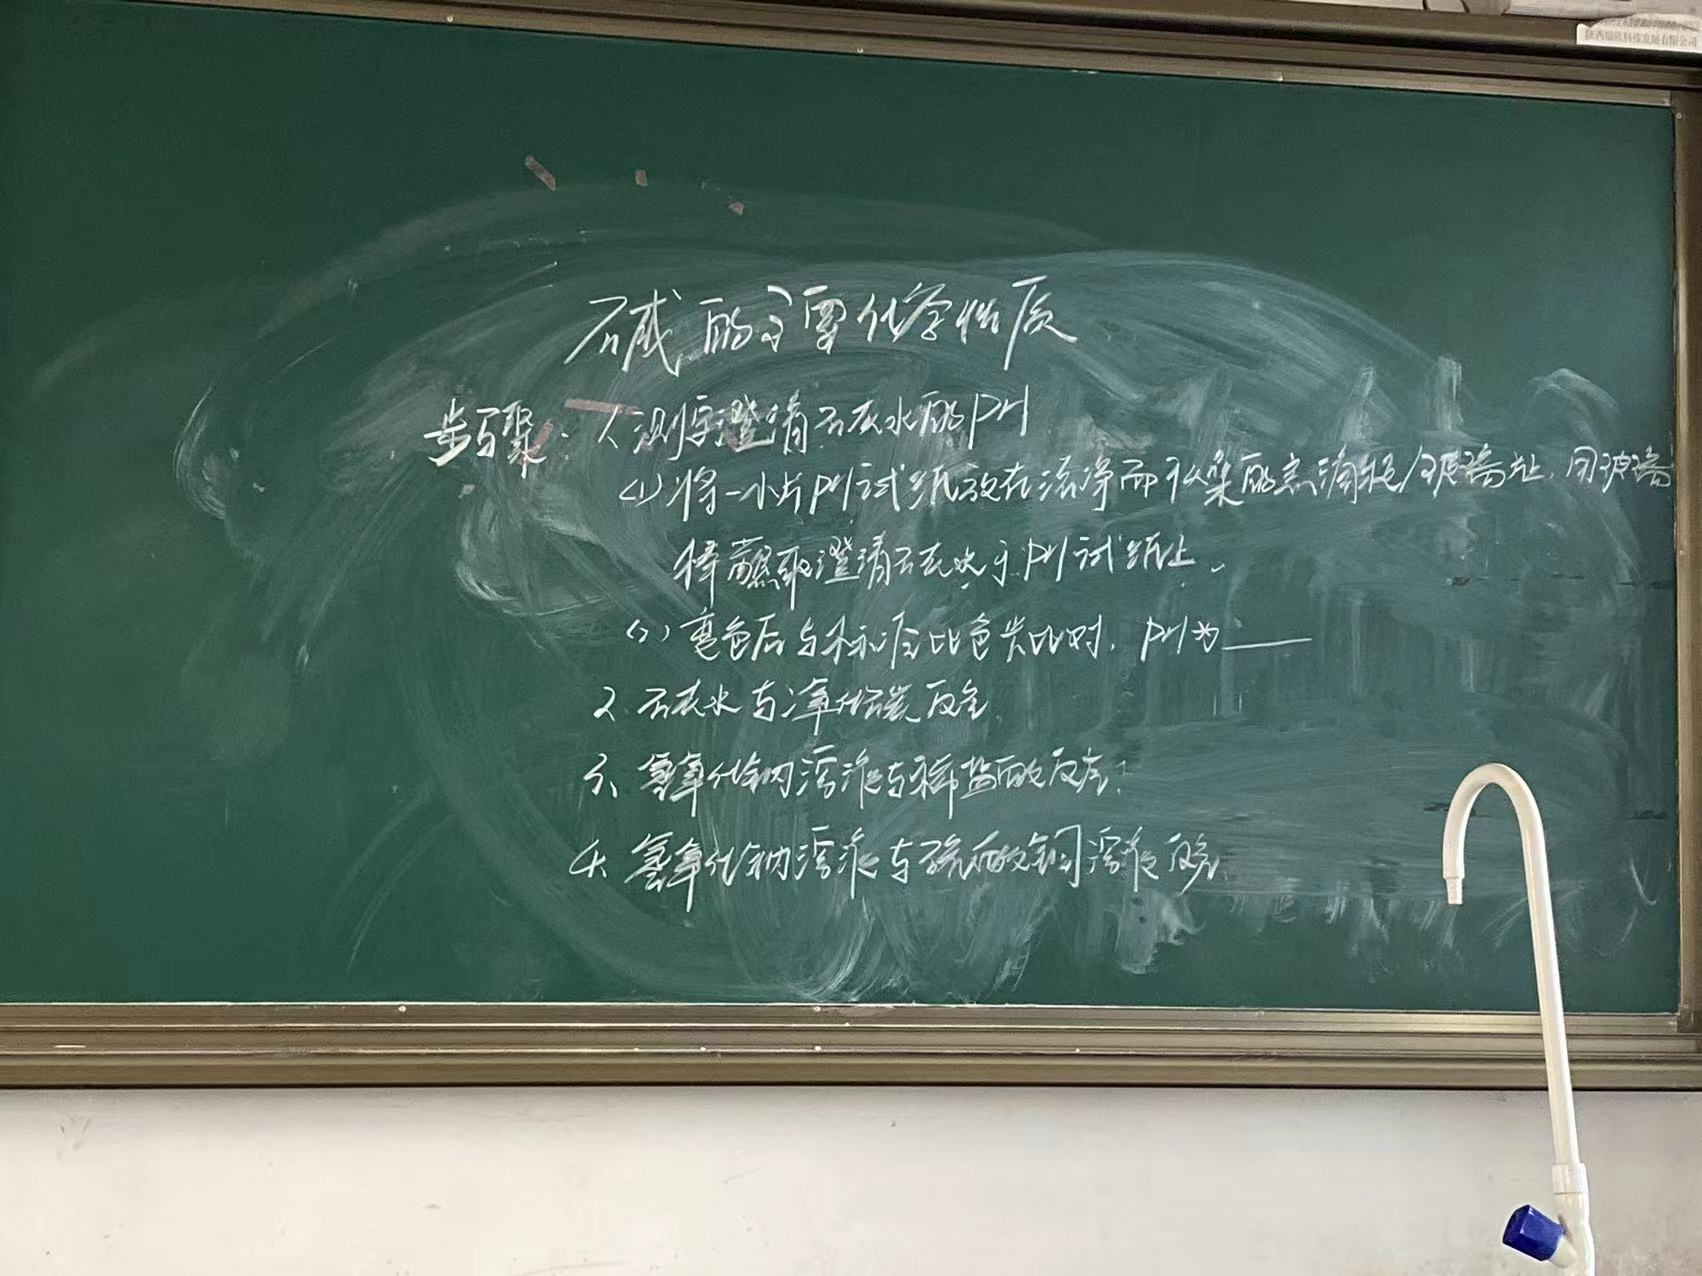 陕西瑞欣科技发展有限公司
碱的主要化学性质
步骤: 1、测定澄清石灰水的PH
(1)将一小片PH试纸放在洁净而干燥的点滴板/玻璃片上,用玻璃
棒蘸取澄清石灰水于PH试纸上。
(2)变色后与标准比色卡比对,PH为____
2、石灰水与二氧化碳反应
3、氢氧化钠溶液与稀盐酸反应.
4、氢氧化钠溶液与硫酸铜溶液反应.